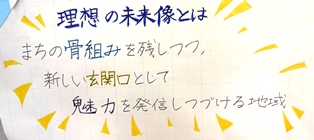 理想の未来像とは
まちの骨組みを残しつつ、
新しい玄関口として
魅力を発信しつづける地域